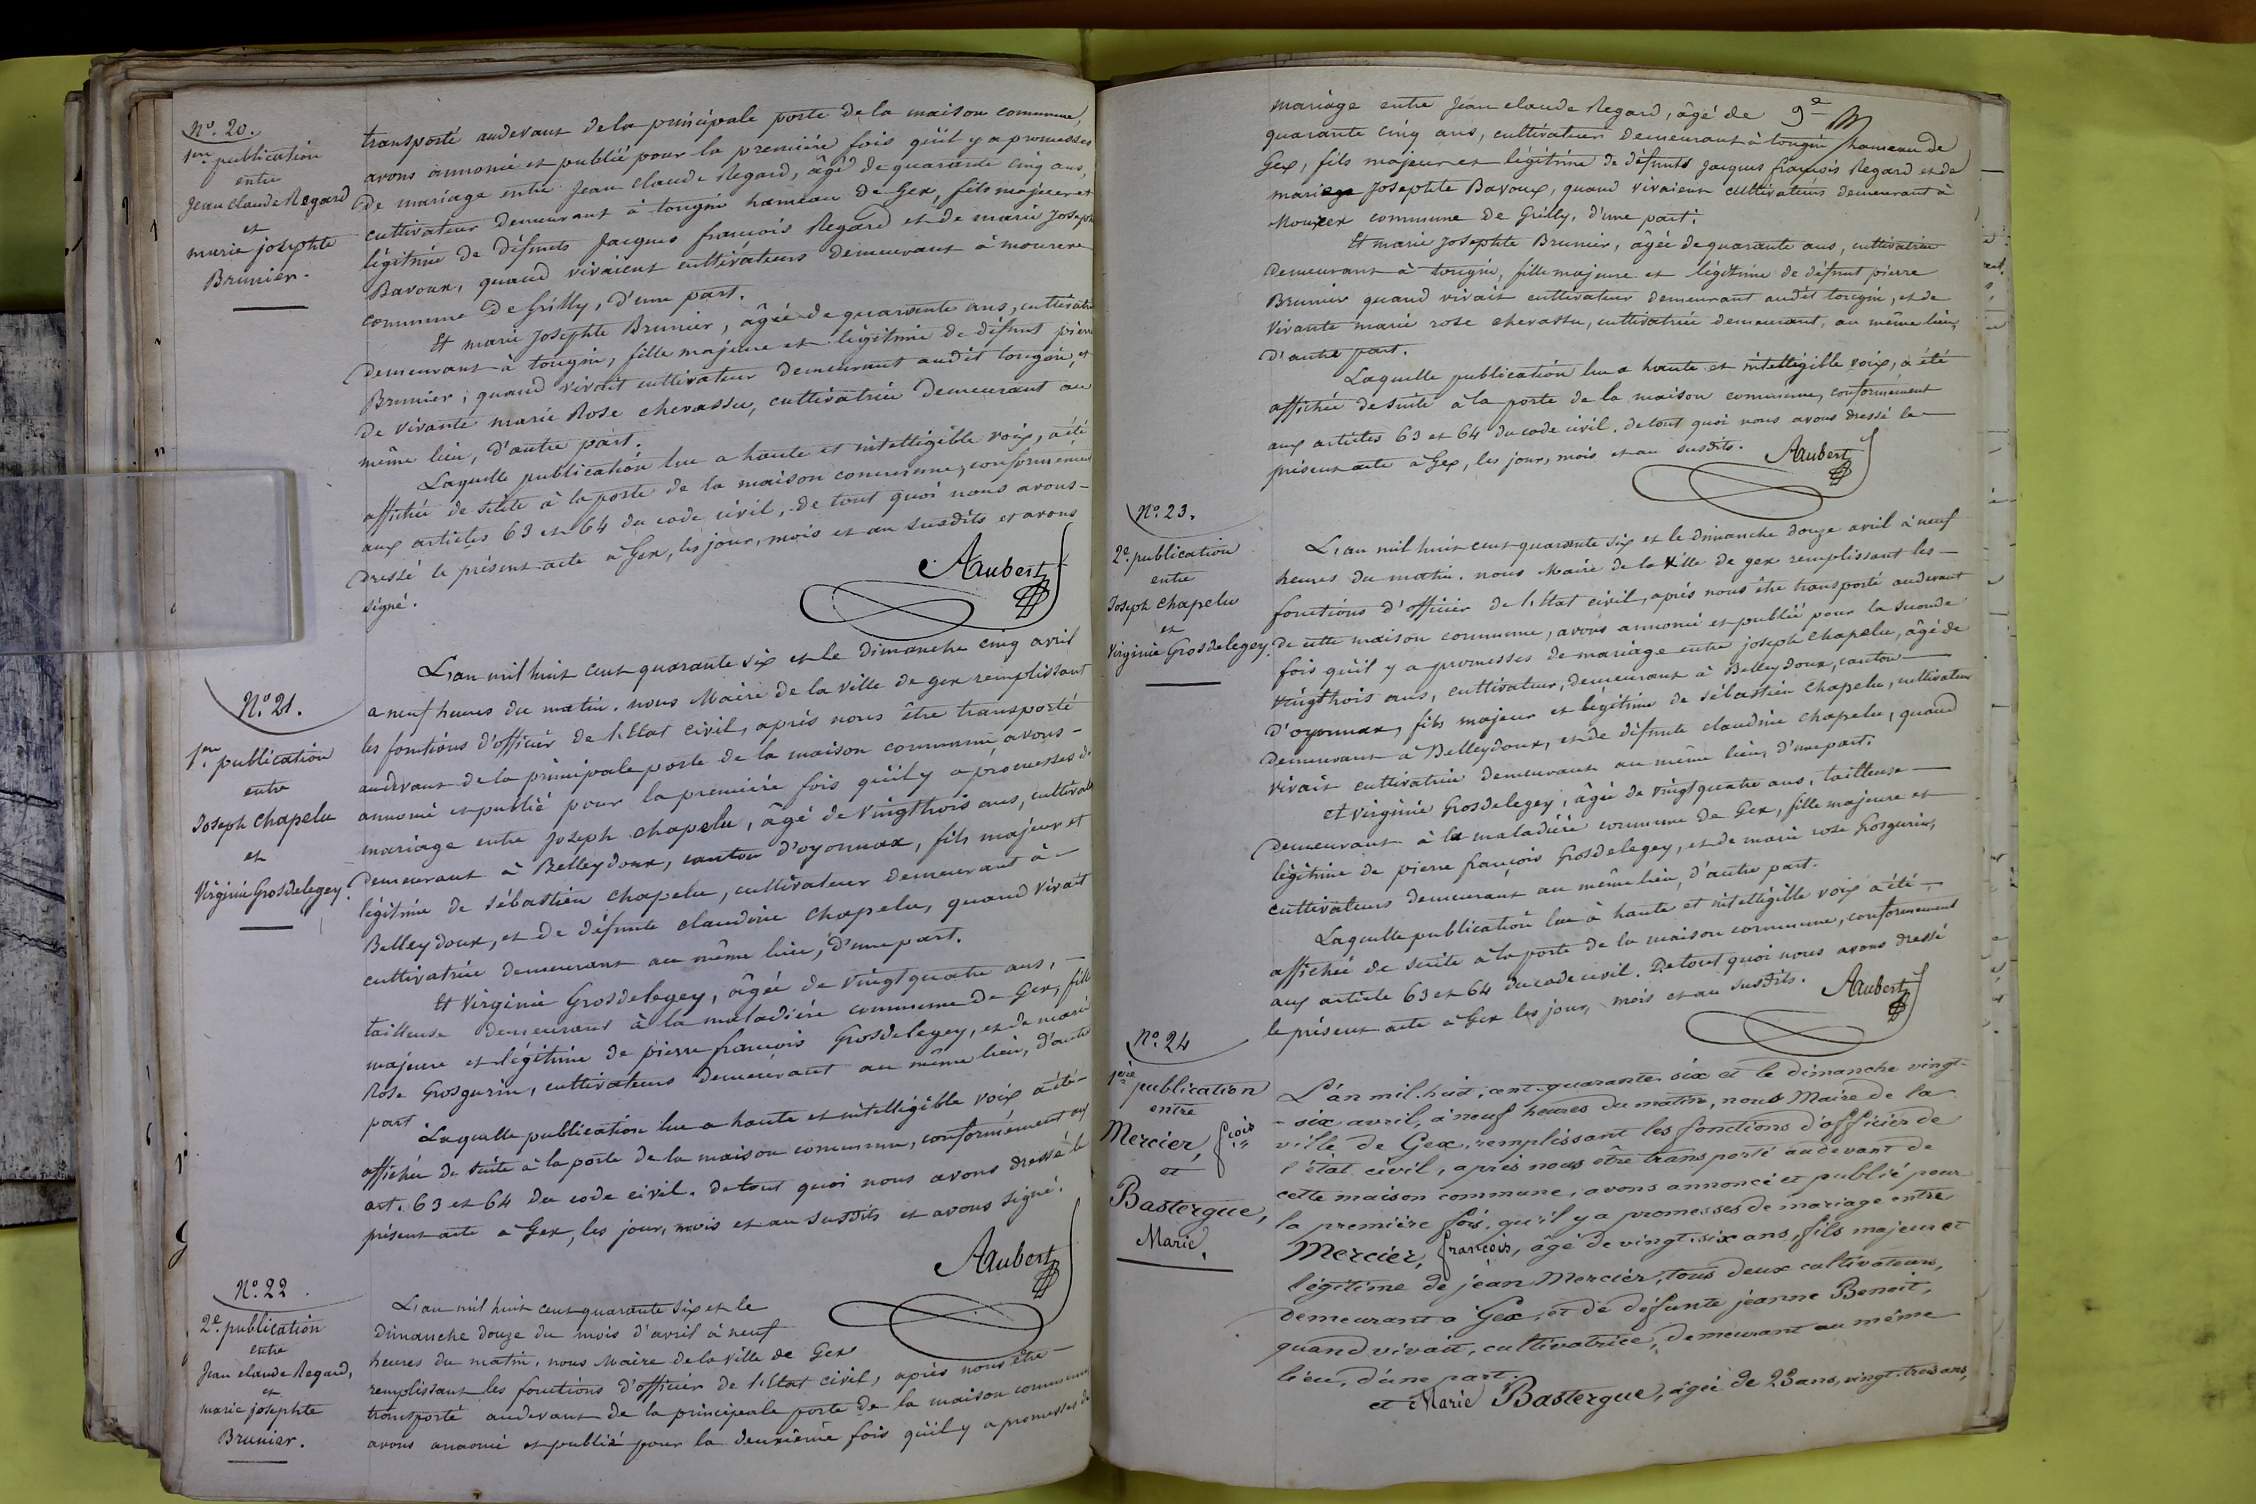 N.º 20.
1ère publication
entre
Jean claude Regard
et
marie josephte
Brunier.
transporté audevant de la principale porte de la maison commune,
avons annoncé et publié pour la première fois qu'il y a promesses
de mariage entre Jean claude Regard, âgé de quarante cinq ans,
cultivateur demeurant à tougin hameau de Gex, fils majeur et
légitime de défunts Jacques françois Regard et de marie Joseph
Bavoux, quand vivaient cultivateurs demeurant à mourex
commune de Grilly, d'une part.
Et marie Josephte Brunier, âgée de quarante ans, cultivatrice
demeurant à tougin, fille majeure et légitime de défunt pierre
Brunier, quand vivait cultivateur demeurant audit tougin, et
de vivante marie Rose chevassu, cultivatrice demeurant au
même lieu, d'autre part.
Laquelle publication lue a haute et intelligible voix, a été
affichée de suite à la porte de la maison commune, conformément
aux articles 63 et 64 du code civil, de tout quoi nous avons
dressé le présent acte à Gex, les jour, mois et an susdits et avons
signé.
Aubert
N.º 21.
1ère publication
entre
Joseph chapelu
et
Virginie Grosdelegey.
L'an mil huit cent quarante six et le dimanche cinq avril
a neuf heures du matin, nous Maire de la ville de gex remplissant
les fonctions d'officier de l'Etat civil, après nous être transporté
audevant de la principale porte de la maison commune, avons
annoncé et publié pour la première fois qu'il y a promesses de
mariage entre Joseph chapelu, âgé de vingt trois ans, cultivateur
demeurant à Belleydoux, canton d'oyonnax, fils majeur et
légitime de sébastien chapelu, cultivateur demeurant à
Belleydoux, et de défunte claudine chapelu, quand vivait
cultivatrice demeurant au même lieu, d'une part.
Et Virginie Grosdelegey, âgée de vingt quatre ans,
tailleuse demeurant à la maladière commune de Gex, fille
majeure et légitime de pierre françois Grosdelegey, et de marie
Rose Grosgurin, cultivateurs demeurant au même lieu, d'autre
part.
Laquelle publication lue a haute et intelligible voix a été
affichée de suite à la porte de la maison commune, conformément aux
art. 63 et 64 du code civil. de tout quoi nous avons dressé le
présent acte a Gex, les jour, mois et an susdits et avons signé.
Aubert
N.º 22.
2e. publication
entre
Jean claude Regard,
et
marie josephte
Brunier.
L'an mil huit cent quarante six et le
dimanche douze du mois d'avril à neuf
heures du matin, nous Maire de la ville de Gex
remplissant les fonctions d'officier de l'Etat civil, après nous être
transporté audevant de la principale porte de la maison commune
avons annoncé et publié pour la deuxième fois qu'il y a promesses de
mariage entre Jean claude Regard, âgé de 9e
quarante cinq ans, cultivateur demeurant à tougin hameau de
Gex, fils majeur et légitime de défunts Jacques françois Regard et de
marie Josephte Bavoux, quand vivaient cultivateurs demeurant à
Mourex commune de Grilly, d'une part.
Et marie Josephte Brunier, âgée de quarante ans, cultivatrice
demeurant à tougin, fille majeure et légitime de défunt pierre
Brunier quand vivait cultivateur demeurant audit tougin, et de
vivante marie rose chevassu, cultivatrice demeurant, au même lieu,
d'autre part.
Laquelle publication lue a haute et intelligible voix, a été
affichée de suite à la porte de la maison commune, conformément
aux articles 63 et 64 du code civil. de tout quoi nous avons dressé le
présent acte à Gex, les jour, mois et an susdits.
Aubert
N.º 23.
2e. publication
entre
Joseph chapelu
et
Virginie Grosdelegey.
L'an mil huit cent quarante six et le dimanche douze avril à neuf
heures du matin. nous Maire de la ville de gex remplissant les
fonctions d'officier de l'Etat civil, après nous être transporté audevant
de cette maison commune, avons annoncé et publié pour la seconde
fois qu'il y a promesses de mariage entre joseph chapelu, âgé de
vingt trois ans, cultivateur, demeurant à Belleydoux, canton
d'oyonnax, fils majeur et légitime de sébastien chapelu, cultivateur
demeurant à Belleydoux, et de défunte claudine chapelu, quand
vivait cultivatrice demeurant au même lieu, d'une part.
et virginie Grosdelegey, âgée de vingt quatre ans, tailleuse
demeurant à la maladière commune de Gex, fille majeure et
légitime de pierre françois Grosdelegey, et de marie rose Grosgurin,
cultivateurs demeurant au même lieu, d'autre part.
Laquelle publication lue à haute et intelligible voix a été
affichée de suite à la porte de la maison commune, conformément
aux article 63 et 64 du code civil. De tout quoi nous avons dressé
le présent acte a Gex les jour, mois et an susdits.
Aubert
N.º 24
1ère publication
entre
Mercier, fçois
et
Bastergue,
Marie.
L'an mil huit cent quarante six et le dimanche vingt-
-six avril, à neuf heures du matin, nous Maire de la
ville de Gex, remplissant les fonctions d'officier de
l'état civil, après nous être transporté audevant de
cette maison commune, avons annoncé et publié pour
la première fois, qu'il y a promesses de mariage entre
Mercier, françois, âgé de vingt-six ans, fils majeur et
légitime de jean Mercier, tous deux cultivateurs,
demeurant à Gex, et de défunte jeanne Benoit,
quand vivait, cultivatrice, demeurant au même
lieu, d'une part.
et Marie Bastergue, âgée de 23 ans, vingt-trois ans,